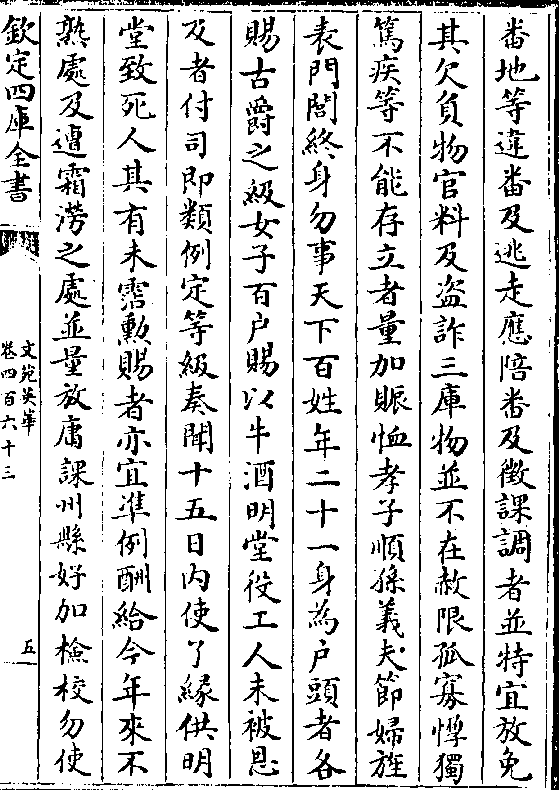 番地等違番及逃走應陪番及徵課調者並特宜放免
其欠負物官料及盗詐三庫物並不在赦限孤寡惸獨
篤疾等不能存立者量加賑恤孝子順孫義夫節婦旌
表門閭終身勿事天下百姓年二十一身為户頭者各
賜古爵之級女子百户賜以牛酒明堂役工人未被恩
及者付司即類例定等級奏聞十五日内使了縁供明
堂致死人其有未霑勲賜者亦宜凖例酬給今年來不
熟處及遭霜澇之處並量放庸課州縣好加檢校勿使
欽定四庫全書
文苑英華
卷四百六十三
五